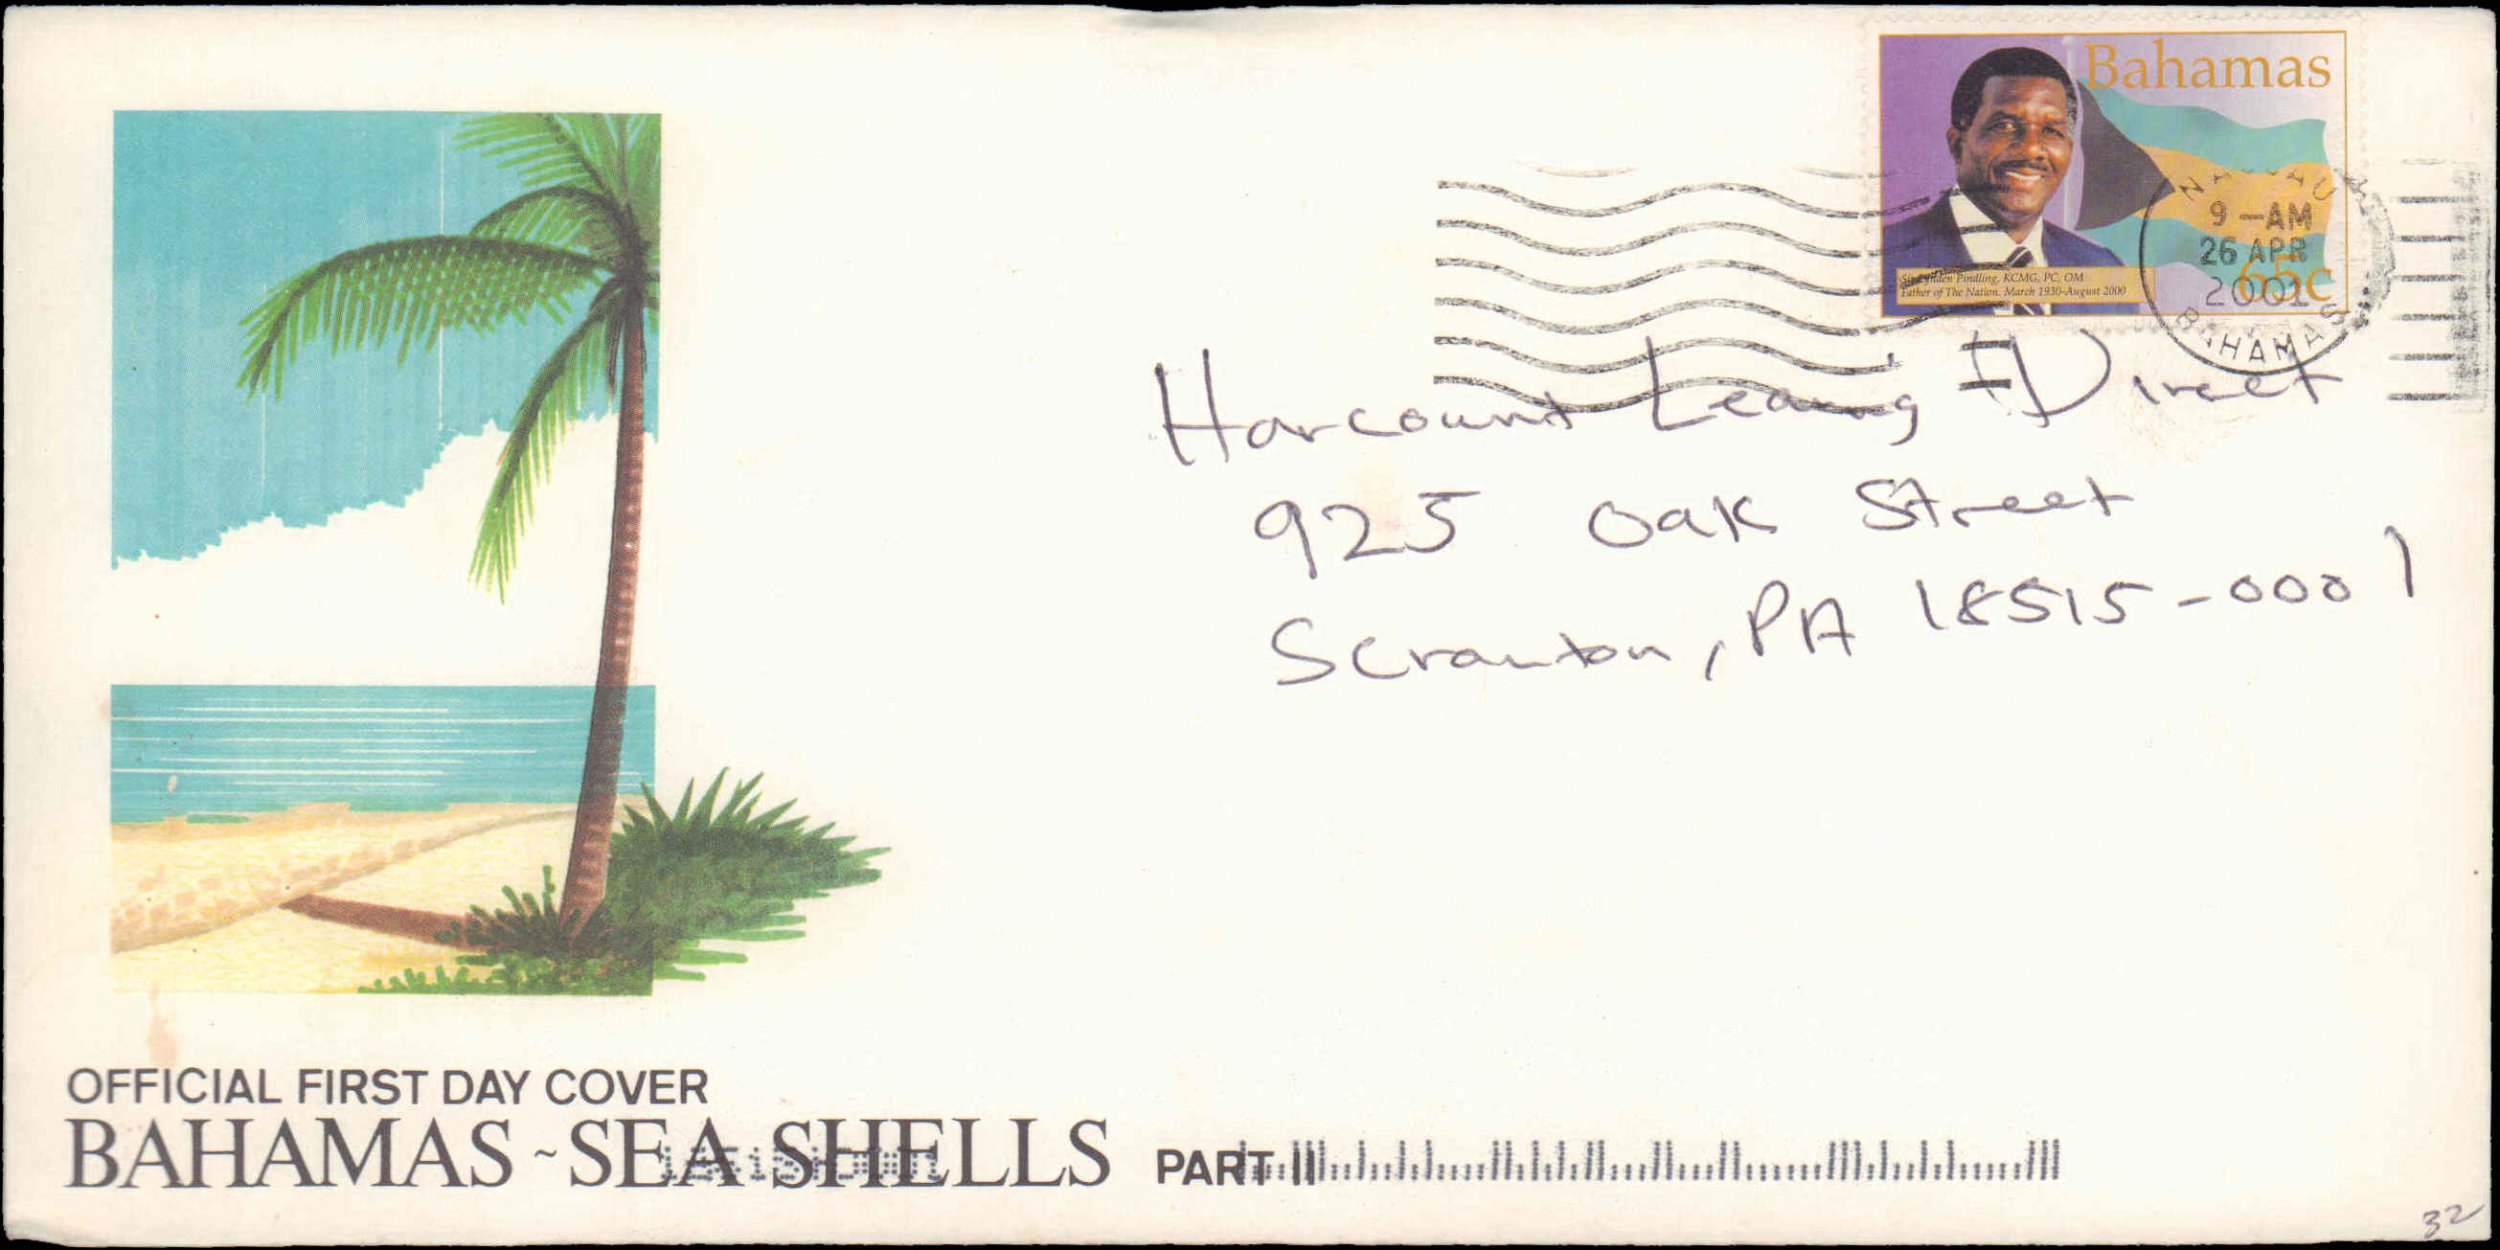 Bahamas
Sir Lynden Pindling, KCMG, PC, OM
Father of The Nation. March 1930-August 2000
65c
NASSAU
9 -AM
26 APR
2001
BAHAMAS
Harcount Learng Direct
925 Oak Street
Scranton, PA 18515-0001
OFFICIAL FIRST DAY COVER
BAHAMAS ~ SEA SHELLS PART II
32